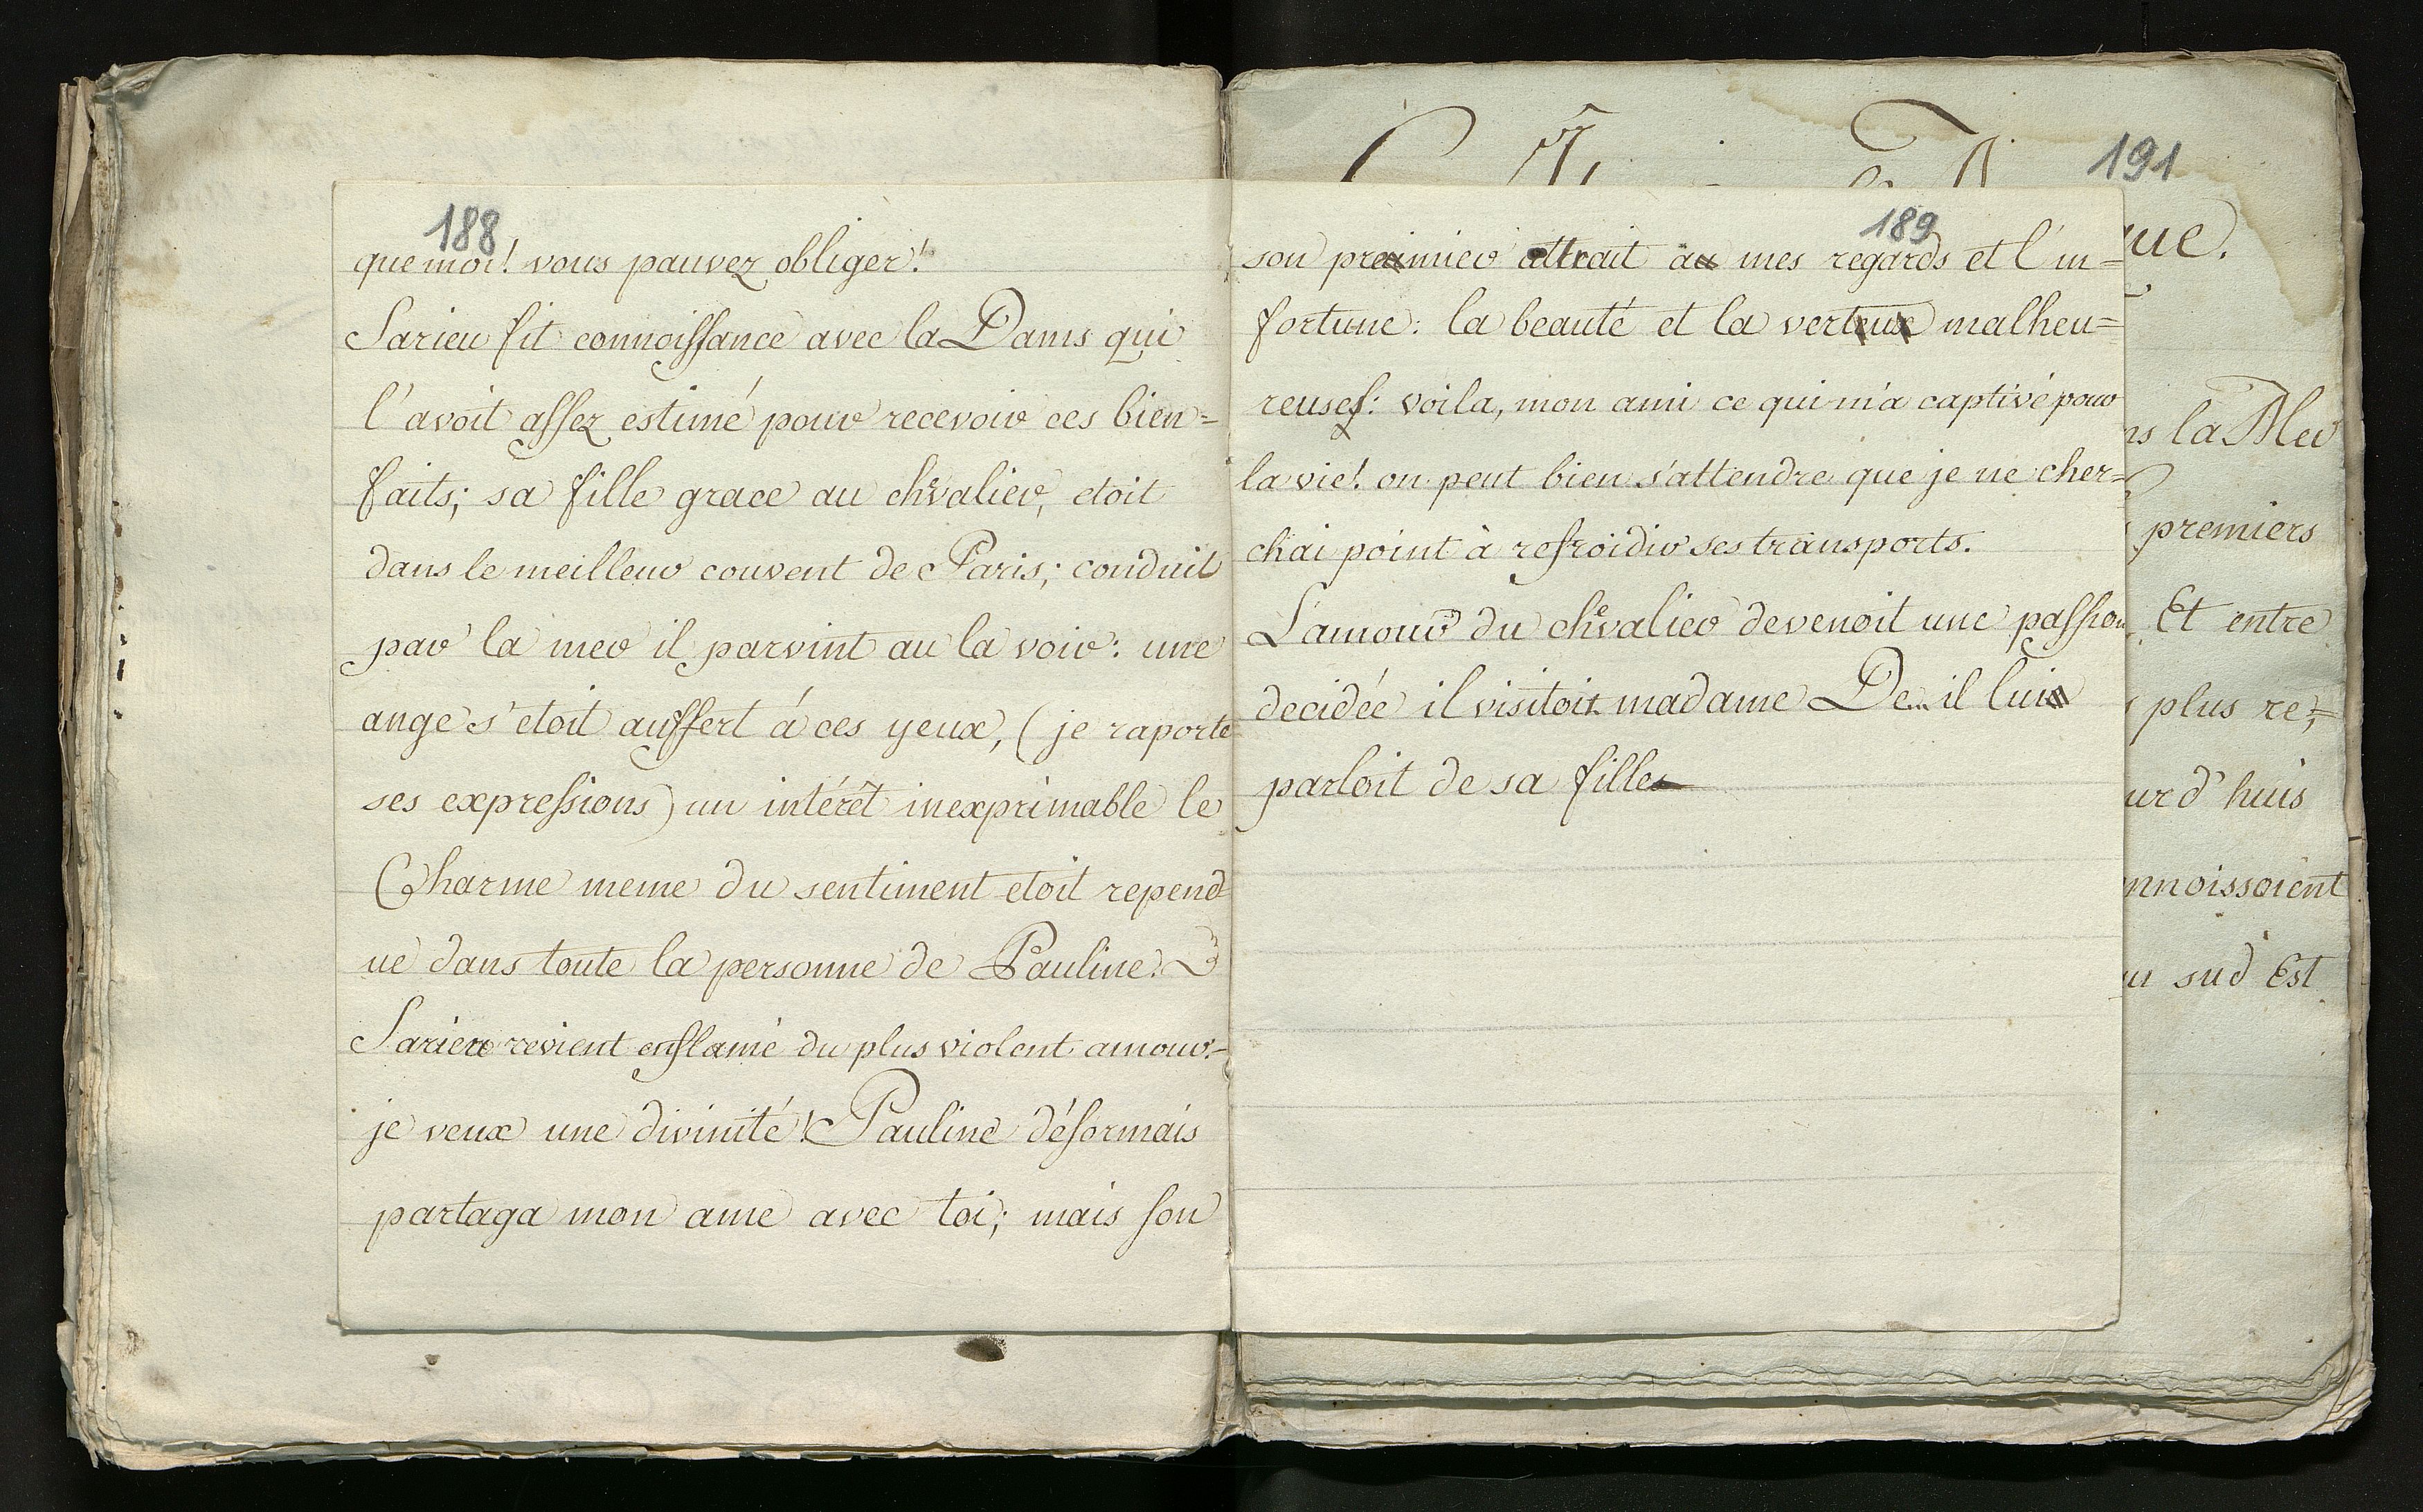 188
que moi! vous pauvez obliger!
Sarieu fit connoissance avec la Dams qui
l'avoit assez estimé pour recevoir ces bien=
faits; sa fille grace au chevalier, etoit
dans le meilleur couvent de Paris; conduit
par la mer il parvint au la voir: une
ange s'etoit auffert á ces yeux, (je raporte
ses expressions) un intérêt inexprimable le
Charme meme du sentiment etoit repend
ue dans toute la personne de Pauline.
Sarieu revient enflamé du plus violent amour.
je veux une divinité! Pauline désormais
partaga mon ame avec toi; mais son
189
son premier attrait a mes regards et l'in=
fortune: la beauté et la vertu malheu=
reuses: voila, mon ami ce qui m'a captivé pour
la vie! on peut bien s'attendre que je ne cher=
chai point à refroidir ses transports.
L'amour du chevalier devenoit une passion
decidée il visitoit madame De... il lui
parloit de sa fille
191
ue.
ns la Mer
premiers
Et entre
plus re=
urd'huis
nnoissoient
sud Est